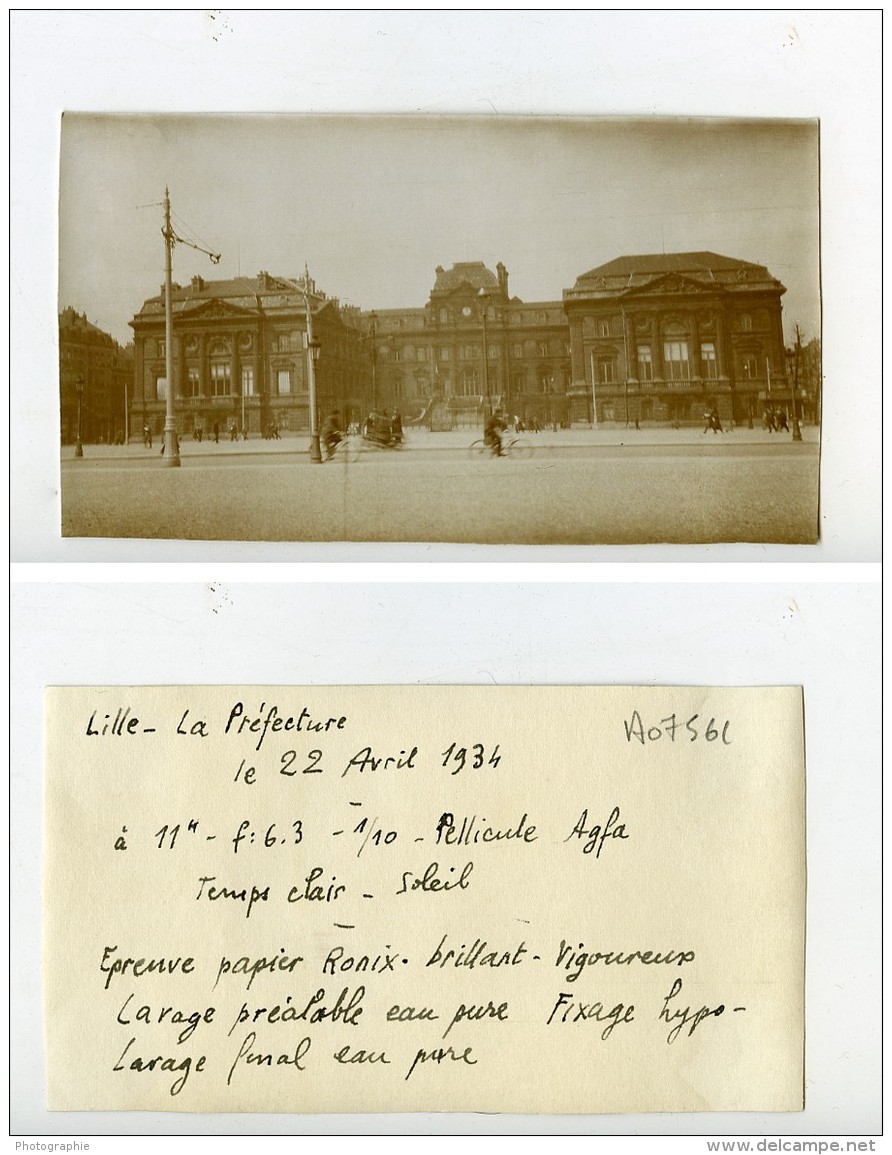 Lille - La Préfecture
le 22 Avril 1934
à 11h - f: 6.3 - 1/10 - Pellicule Agfa
Temps clair - Soleil
Epreuve papier Ronix - brillant - Vigoureux
Lavage préalable eau pure Fixage hypo -
Lavage final eau pure
Photographie
www.delcampe.net